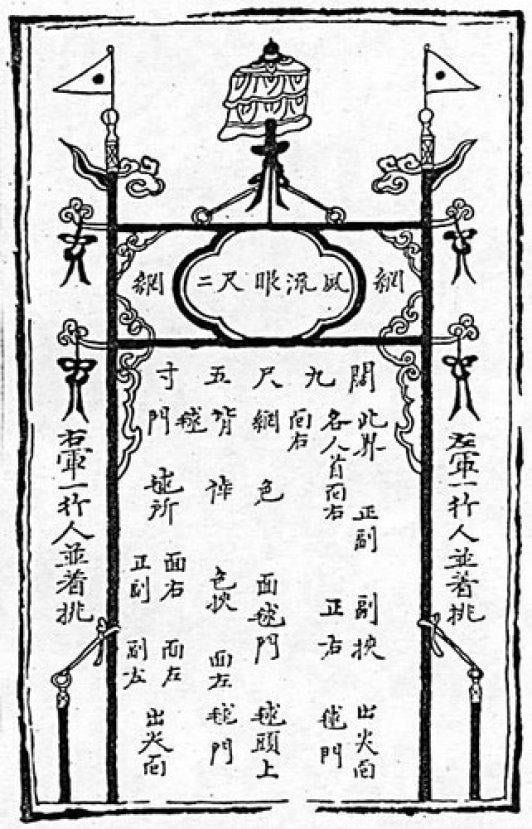 網 風流眼尺二 網
闊九尺五寸
左軍一行人並着挑
此界 正副 副挾 出尖向
各人首向右 正右 毬門
向右
網 色 面毬門 毬頭上
背 色挾 面左 毬門
毬
門 毬所 面右 面左 出尖向
正副 副左
右軍一行人並着挑